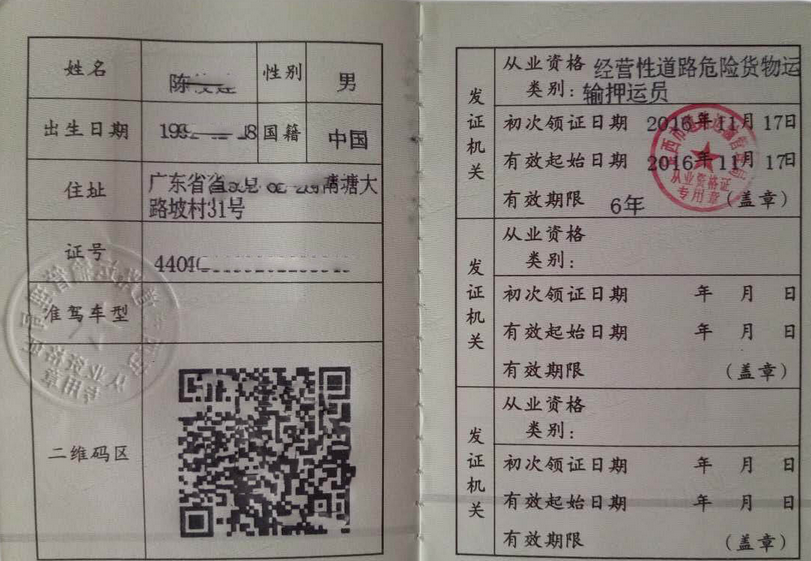 姓名 陈
性别 男
出生日期 199 8
国籍 中国
住址 广东省 塘大
路坡村31号
证号 4404
准驾车型
二维码区
发证机关
从业资格 经营性道路危险货物运
类别: 输押运员
初次领证日期 2016年11月17日
有效起始日期 2016年11月17日
有效期限 6年 (盖章)
从业资格证
专用章
发证机关
从业资格
类别:
初次领证日期 年 月 日
有效起始日期 年 月 日
有效期限 (盖章)
发证机关
从业资格
类别:
初次领证日期 年 月 日
有效起始日期 年 月 日
有效期限 (盖章)